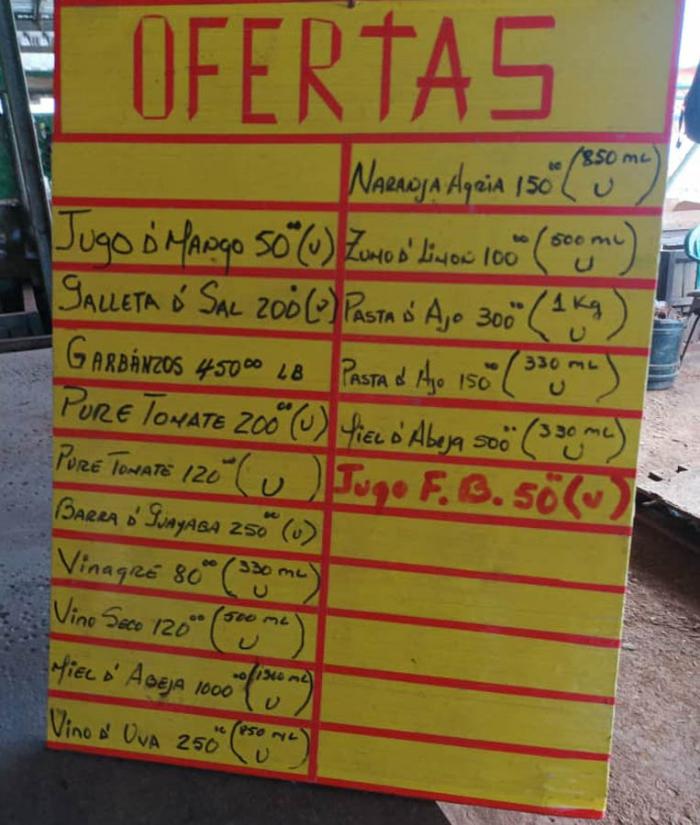 OFERTAS
Jugo D' Mango 50⁰⁰ (U)
Galleta D' Sal 200⁰⁰ (U)
Garbánzos 450⁰⁰ LB
Pure Tomate 200⁰⁰ (U)
Pure Tomate 120⁰⁰ (U)
Barra D' Guayaba 250⁰⁰ (U)
Vinagre 80⁰⁰ (330 mL U)
Vino Seco 120⁰⁰ (500 mL U)
Miel D' Abeja 1000⁰⁰ (mL U)
Vino D' Uva 250⁰⁰ (850 mL U)
Naranja Agria 150⁰⁰ (850 mL U)
Zumo D' Limon 100⁰⁰ (500 mL U)
Pasta D' Ajo 300⁰⁰ (1 Kg U)
Pasta d' Ajo 150⁰⁰ (330 mL U)
Miel D' Abeja 500⁰⁰ (330 mL U)
Jugo F. B. 50⁰⁰ (U)